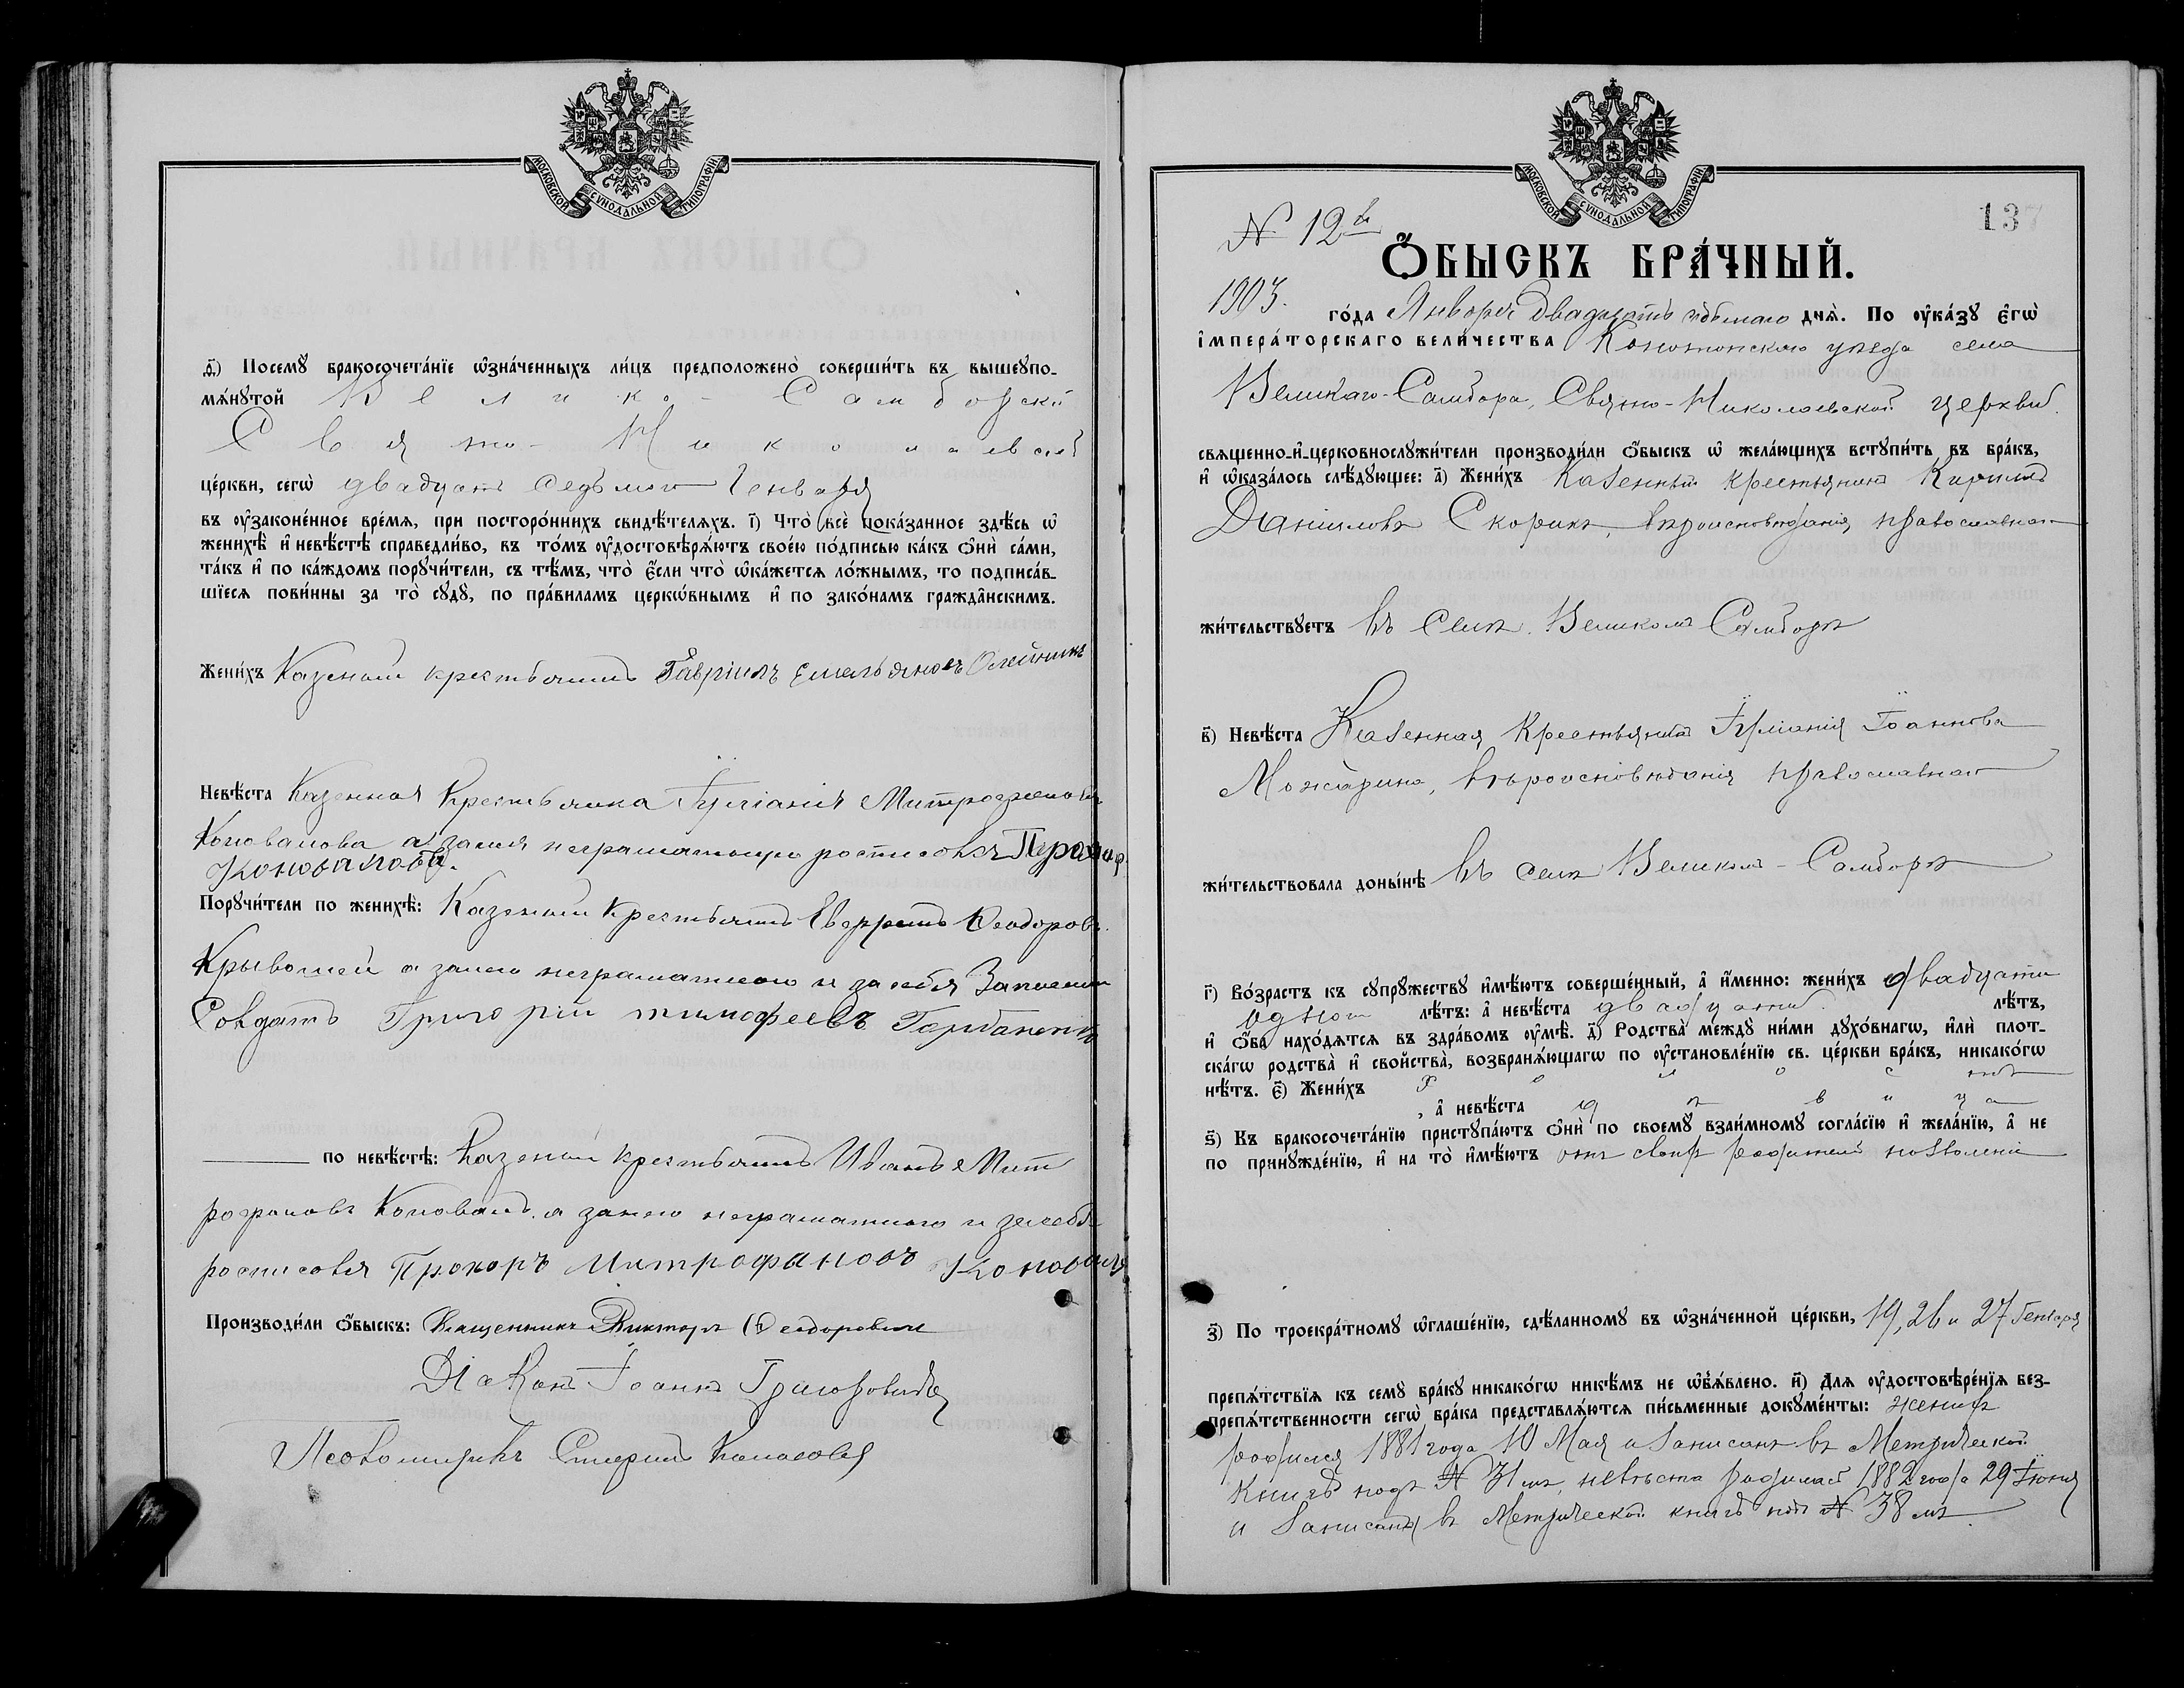 МОСКОВСКОЙ СѴНОДАЛЬНОЙ ТИПОГРАФІИ
ѳ҃) Посемꙋ бракосочета́нїе ѡ҆зна́ченныхъ ли́цъ предположено̀ соверши́ть въ вышеꙋпо-
мѧ́нꙋтой Велико-Самборской
Свято-Николаевской
це́ркви, сегѡ̀ двадцать седьмого Генваря
въ ᲂу҆законе́нное вре́мѧ, при посторо́ннихъ свидѣ́телѧхъ. і҃) Что̀ всѐ пока́занное здѣ́сь ѡ҆
женихѣ̀ и҆ невѣ́стѣ справедли́во, въ то́мъ ᲂу҆достовѣрѧ́ютъ свое́ю по́дписью ка́къ ѻ҆нѝ са́ми,
та́къ и҆ по ка́ждомъ порꙋчи́тели, съ тѣ́мъ, что̀ є҆́сли что̀ ѡ҆ка́жетсѧ ло́жнымъ, то подписа́в-
шїесѧ пови́нны за то̀ сꙋдꙋ̀, по пра́виламъ церкѡ́внымъ и҆ по зако́намъ гражда́нскимъ.
Жени́хъ Казеный крестьянинъ Гавріилъ Емельяновъ Олейникъ
Невѣ́ста Казенная Крестьянка Іуліанія Митрофанова
Коновалова а занея неграматную росписовся Прохор
Коновалов.
Порꙋчи́тели по женихѣ̀: Казеный Крестьянинъ Феодоровъ
Кривошей а занего неграматного и засебя Запасный
Солдатъ Григорій тимофеевъ Горбаненко
по невѣ́стѣ: Казеный крестьянинъ Иванъ Мит
рофановъ Коновалъ. а занего неграматного и засебя
росписовся Прохоръ Митрофановъ Коновалъ
Производи́ли ѻ҆́быскъ: Священникъ Викторъ Ѳеодоровскій
Діаконъ Іоаннъ Григоровичъ
Псаломщикъ
МОСКОВСКОЙ СѴНОДАЛЬНОЙ ТИПОГРАФІИ
137
№ 12й
Ѻ҆́БЫСКЪ БРА́ЧНЫЙ.
1903. го́да Января Двадцать седьмаго днѧ̀. По ᲂу҆ка́зꙋ є҆гѡ̀
і҆мпера́торскагѡ вели́чества Конотопскаго уѣзда села
Великаго-Самбора, Свято-Николаевской церкви
свѧщенно-и҆-церковнослꙋжи́тели производи́ли ѻ҆́быскъ ѡ҆ жела́ющихъ встꙋпи́ть въ бра́къ,
и҆ ѡ҆каза́лось слѣ́дꙋющее: а҃) Жени́хъ Казенный крестьянинъ Кириллъ
Даніиловъ Скорикъ, вѣроисповѣданія православнаго
жи́тельствꙋетъ въ селѣ Великомъ Самборѣ
в҃) Невѣ́ста Казенная Крестьянка Іуліанія Іоаннова
Можарина, вѣроисповѣданія православнаго
жи́тельствовала доны́нѣ въ селѣ Великомъ-Самборѣ
г҃) Во́зрастъ къ сꙋпрꙋ́жествꙋ и҆мѣ́ютъ соверше́нный, а҆ и҆́менно: жени́хъ двадцати
одного лѣ́тъ: а҆ невѣ́ста двадцати лѣ́тъ,
и҆ ѻ҆́ба нахо́дѧтсѧ въ здра́вомъ ᲂу҆мѣ̀. д҃) Родства̀ междꙋ̀ ни́ми дꙋхо́внагѡ, и҆лѝ плот-
ска́гѡ родства̀ и҆ сво́йства, возбранѧ́ющагѡ по ᲂу҆становле́нїю св. це́ркви бра́къ, никако́гѡ
нѣ́тъ. є҃) Жени́хъ холостъ
, а҆ невѣ́ста дѣвица
ѕ҃) Къ бракосочета́нїю пристꙋпа́ютъ ѻ҆нѝ по своемꙋ̀ взаи́мномꙋ согла́сїю и҆ жела́нїю, а҆ не
по принꙋжде́нїю, и҆ на то̀ и҆мѣ́ютъ отъ своихъ родителей позволеніе
з҃) По троекра́тномꙋ ѡ҆глаше́нїю, сдѣ́ланномꙋ въ ѡ҆зна́ченной це́ркви, 19, 26 и 27 Генваря
препѧ́тствїѧ къ семꙋ̀ бра́кꙋ никако́гѡ никѣ́мъ не ѡ҆б̾ѧ́влено. и҃) Длѧ ᲂу҆достовѣре́нїѧ без-
препѧ́тственности сегѡ̀ бра́ка представлѧ́ютсѧ пи́сьменные докꙋме́нты: женихъ
родился 1881 года 10 Мая и записанъ въ Метрической
Книгѣ подъ № 31мъ, невѣста родилась 1882 года 29 Іюня
и записана въ Метрической книгѣ подъ № 38мъ